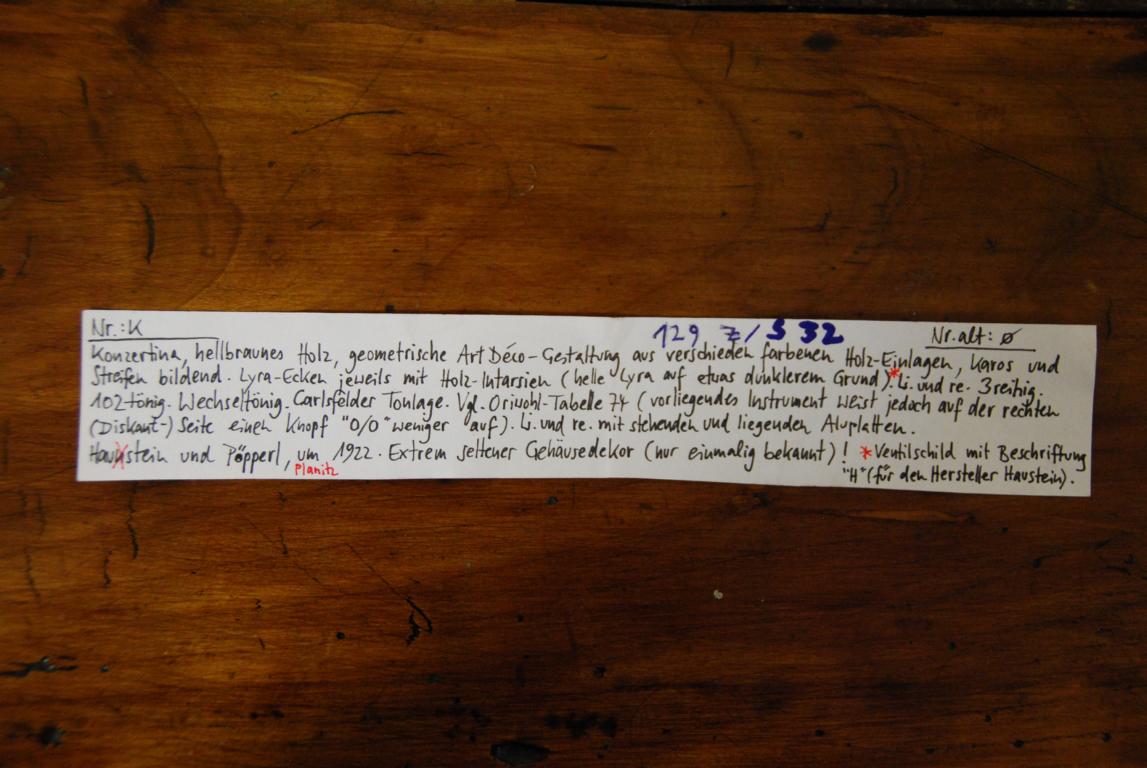 Nr.: K 129 Z/S 32 Nr. alt: ø
Konzertina, hellbraunes Holz, geometrische Art Déco-Gestaltung aus verschieden farbenen Holz-Einlagen, Karos und
Streifen bildend. Lyra-Ecken jeweils mit Holz-Intarsien (helle Lyra auf etwas dunklerem Grund).* Li. und re. 3reihig.
102tönig. Wechseltönig. Carlsfelder Tonlage. Vgl. Oriwohl-Tabelle 74 (vorliegendes Instrument weist jedoch auf der rechten
(Diskant-) Seite einen Knopf "0/0" weniger auf). Li. und re. mit stehenden und liegenden Aluplatten.
Haustein und Pöpperl, um 1922. Extrem seltener Gehäusedekor (nur einmalig bekannt)! * Ventilschild mit Beschriftung
Planitz
"H" (für den Hersteller Haustein).